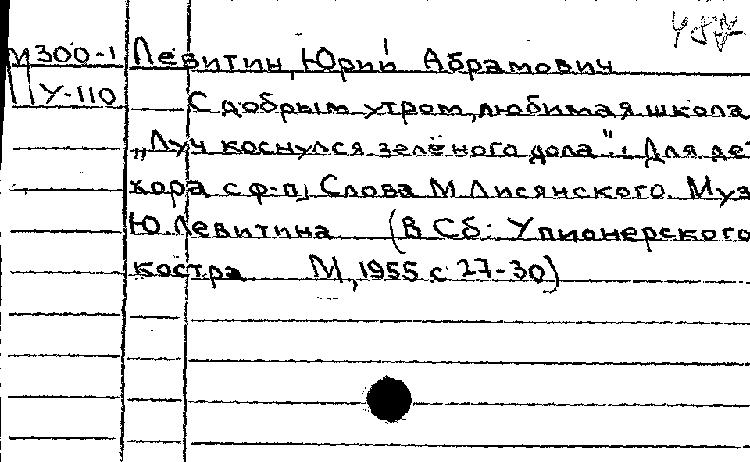 487
М300-1 Левитин, Юрий Абрамович
У-110 С добрым утром, любимая школа
„Луч коснулся зелёного дола". Для де
хора с ф-п. Слова М Лисянского. Муз
Ю.Левитина (В Сб: У пионерского
костра М, 1955 с 27-30)